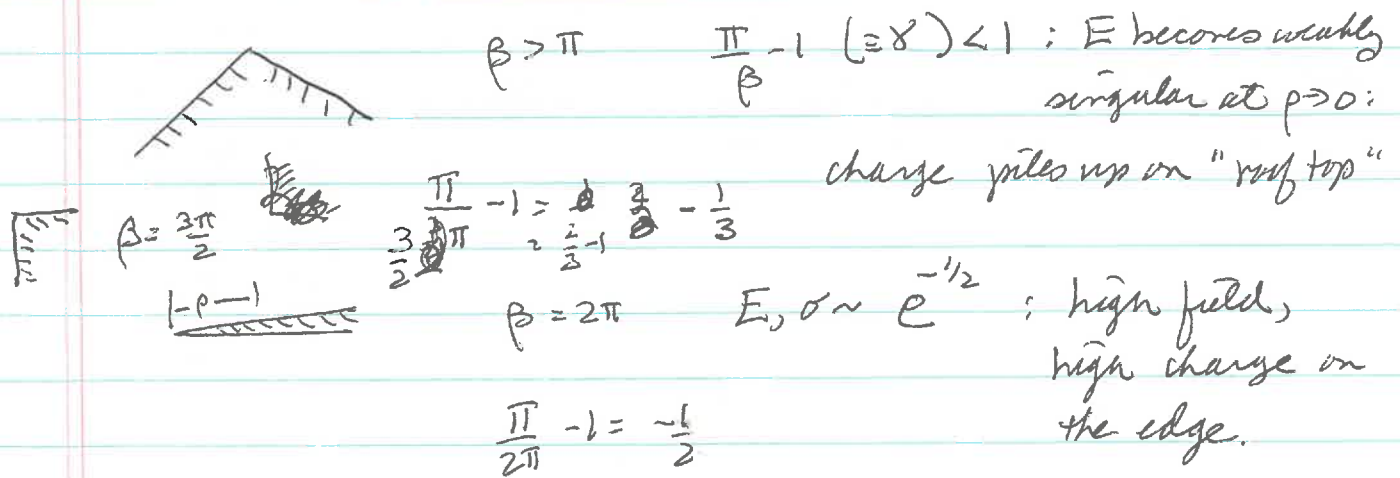 β > π π/β - 1 (≡ γ) < 1 : E becomes weakly
singular at ρ→0:
charge piles up on "roof top"
β = 3π/2 π/(3/2 π) - 1 = - 1/3
= 2/3 - 1
|-ρ-| β = 2π E, σ ~ ρ^(-1/2) : high field,
high charge on
π/2π - 1 = -1/2 the edge.